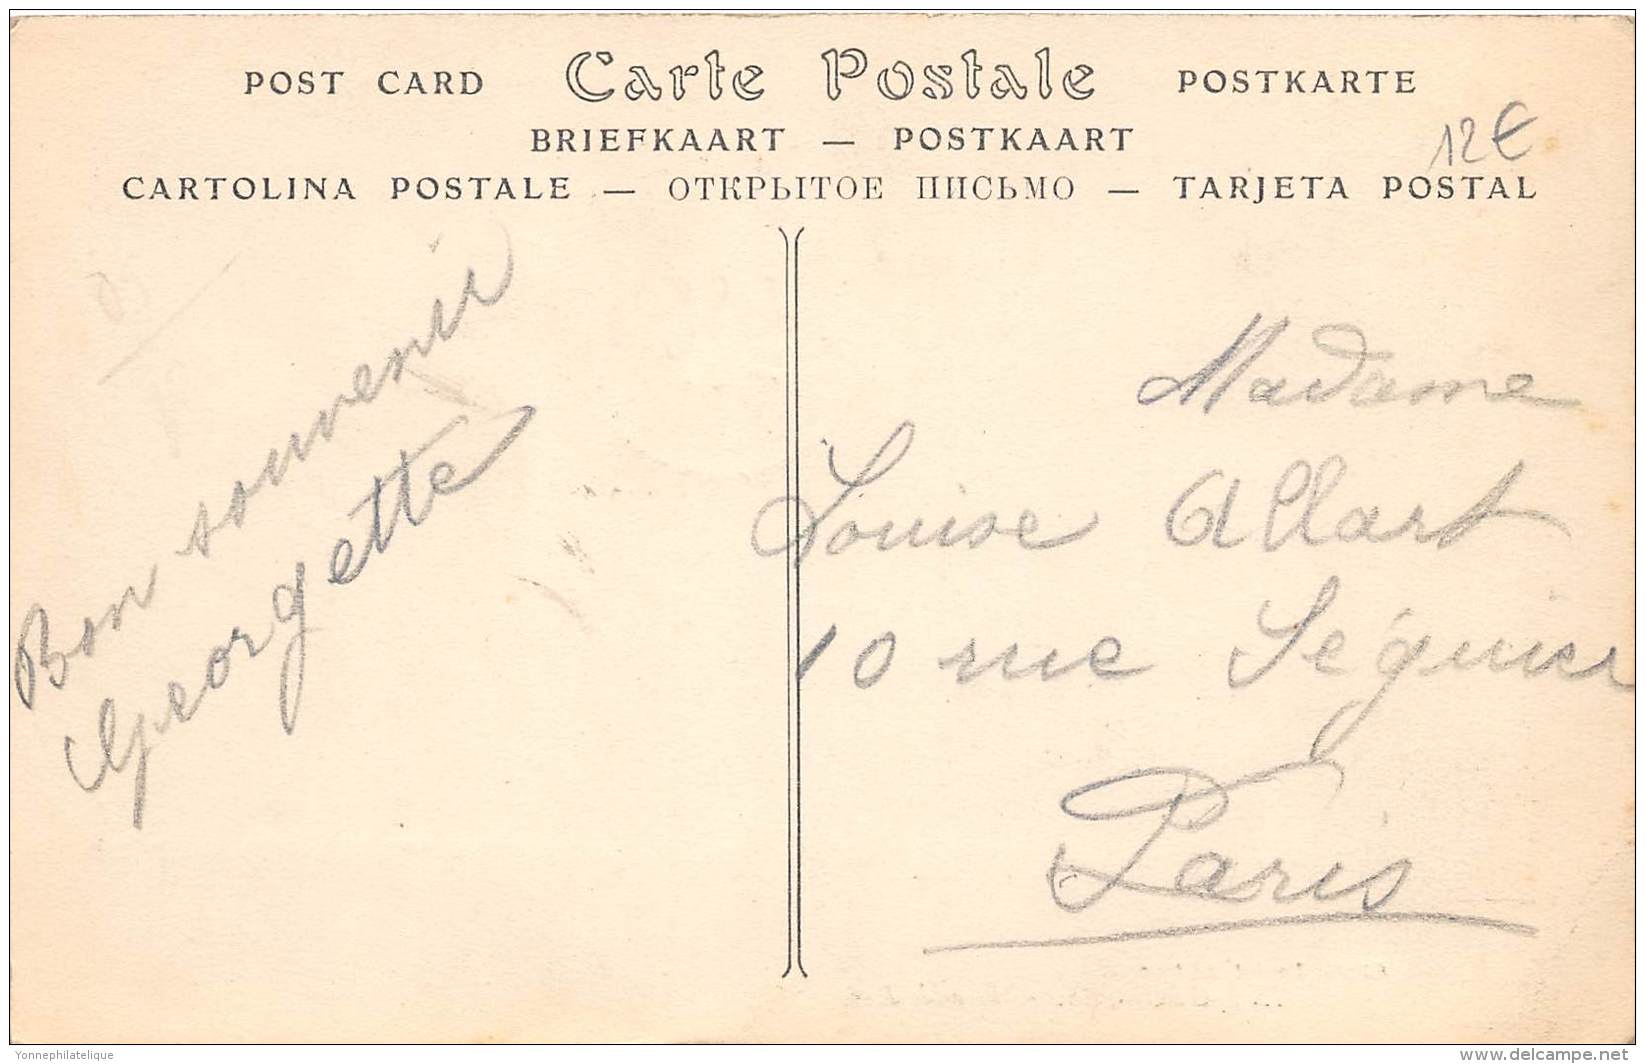 POST CARD Carte Postale POSTKARTE
BRIEFKAART — POSTKAART
12€
CARTOLINA POSTALE — ОТКРЫТОЕ ПИСЬМО — TARJETA POSTAL
Bon souvenir
Georgette
Madame
Louise Allart
10 rue Séguier
Paris
Yonnephilatelique
www.delcampe.net